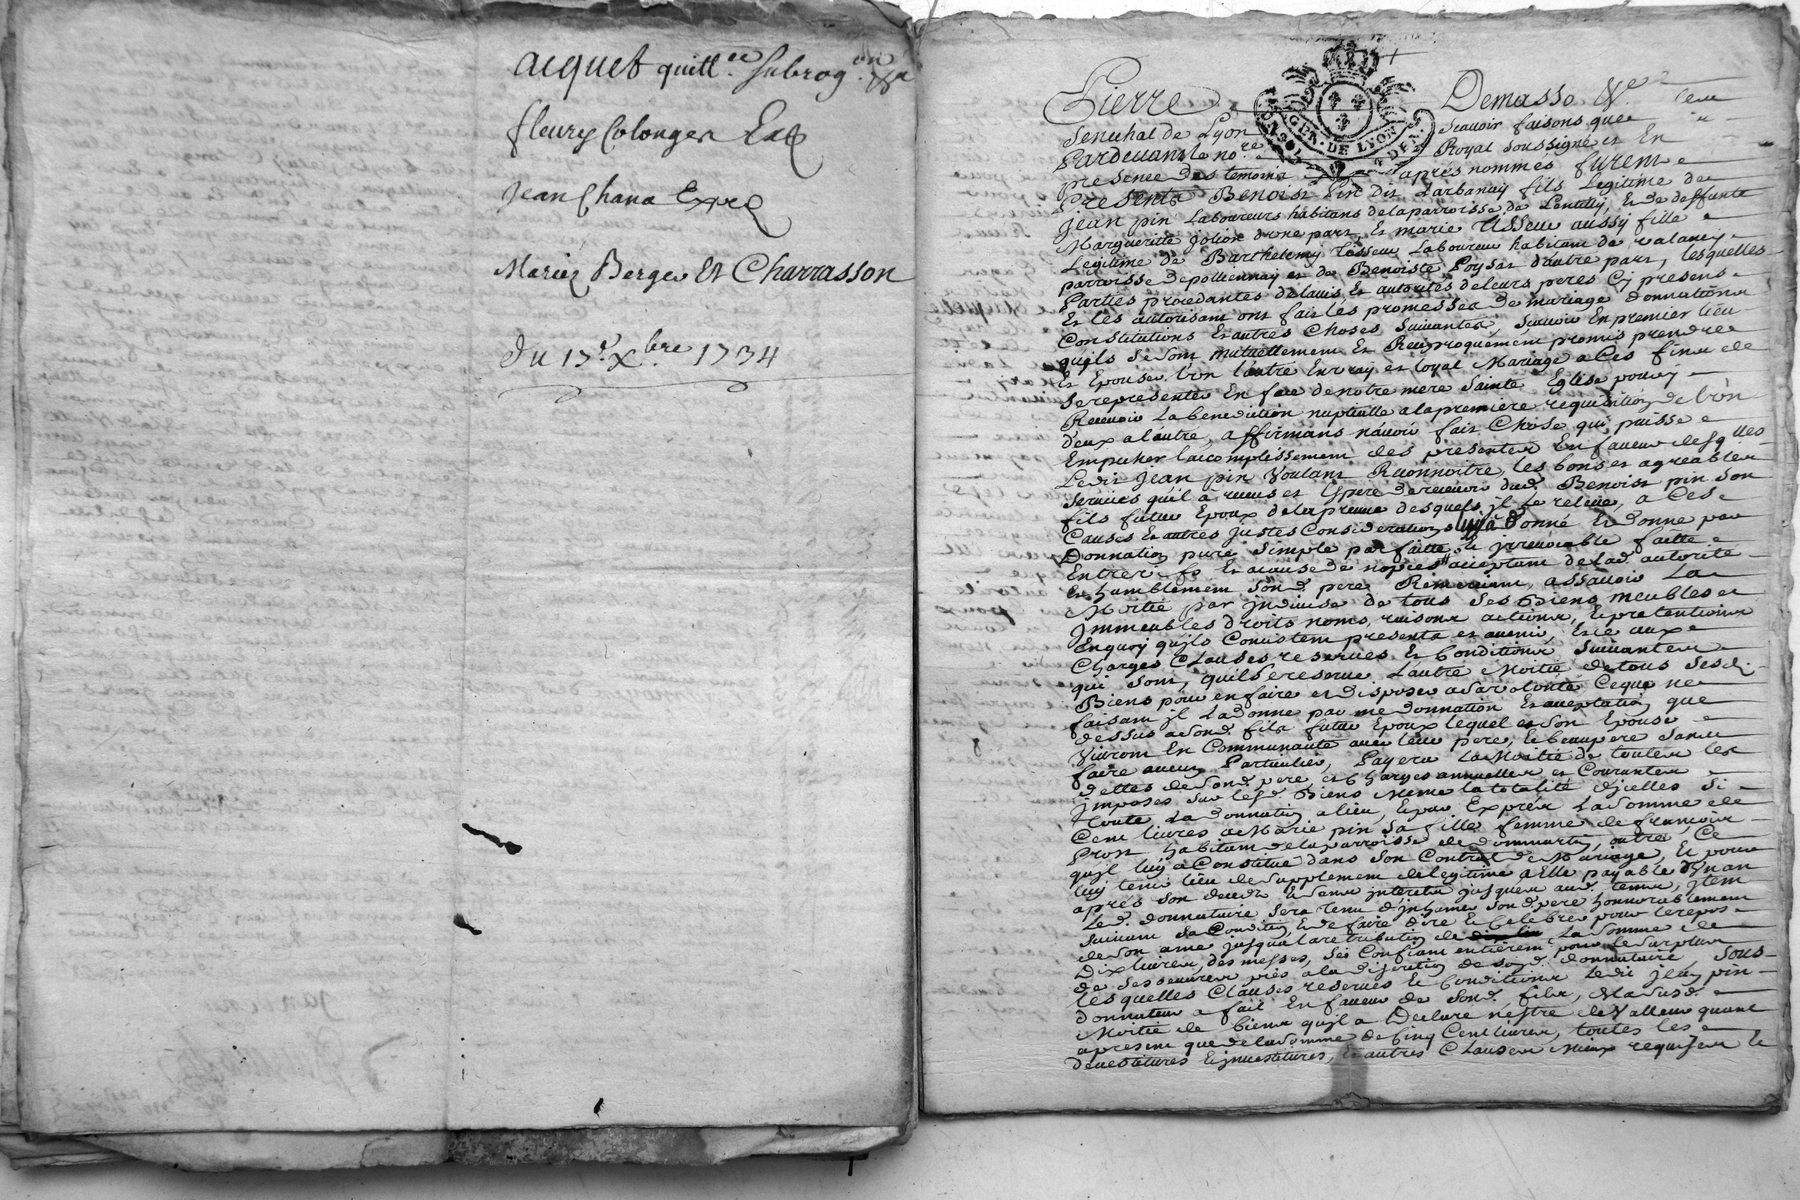 acquet quitt.ce subrog.on
fleury Colonges
Jean Chana
Mariez Berger Et Charrasson
du 13.e Xbre 1734
Pierre Demasso
GEN. DE LYON
Senechal de Lyon Scavoir faisons que
Pardevant le no.re Royal soussigné et En
presence des temoins apres nommés furent
Presents Benoist Pin dit Larbanay fils Legitime de
Jean pin Laboureurs habitans de la parroisse de Lentilly, et de deffunte
Margueritte Jolion d'une part, Et marie Tisseur aussy fille
Legitime de Barthelemy Tisseur Laboureur habitant de valancy
parroisse de pollionnay et de Benoiste Poysat d'autre part, lesquelles
Parties procedantes de lavis Et autorités de leurs peres Cy presens
Et les autorisant ont fait les promesses de mariage donnations
Constitutions Et autres Choses Suivantes, Scavoir En premier lieu
quils se sont mutuellement Et Reciproquement promis prendre
Et Epouser lun lautre En vray et loyal Mariage a Ces fins de
se representer En face de notre mere Sainte Eglise pour y
Recevoir La benediction nuptialle a la premiere requisition de lun
deux a lautre, affirmans navoir fait Chose qui puisse
Empecher laccomplissement des presentes En faveur desquelles
Ledit Jean pin Voulant Reconnoitre les bons et agreables
services quil a receus et Espere de recevoir dud. Benoist pin son
fils futur Epoux de la preuve desquels jl le releve, a Ces
Causes Et autres justes Considerations luy a Donné Et donne par
Donnation pure simple parfaitte et jrrevocable faitte
Entre vifs Et a cause de nopces acceptant de lad. autorité
Et humblement Sond. pere Remerciant, assavoir La
Moitié par jndivise de tous ses Biens meubles et
Jmmeubles droits noms, raisons actions, Et pretentions
En quoy quils Consistent presents et avenir, Et ce aux
Charges Clauses reserves Et Conditions Suivantes
qui sont, quil se reserve Lautre Moitié de tous sesd.
Biens pour en faire et disposer a sa volonté Ce que ne
faisant jl La donne par me donnation Et acceptation que
dessus a sond. fils futur Epoux lequel et son Epouse
Vivront En Communauté avec leur pere, Et beaupere sans
faire aucun Particulier, Payera La Moitié de toutes les
dettes de sond. pere, et Charges annuelles et Courantes
jmposes sur lesd. Biens Meme la totalité d'jcelles si
toute La donnation a lieu, Et par Exprés La somme de
Cent livres a Marie pin sa fille femme de francois
Prost habitant de la parroisse de dommartin, outre Ce
quil luy a Constitué dans son Contrat de Mariage, Et pour
luy tenir lieu de supplement de legitime a Elle payable Vn an
apres son deceds Et sans jnterets jusques aud. terme, jtem
Led. donnataire sera tenu d'jnhumer sond. pere honnorablement
suivant sa Condition, Et de faire dire Et Celebrer pour le repos
de son ame jusqua la retribution de La somme de
Dix livres, des messes, se Confiant entierem.t pour le surplus
de ses oeuvres pies a la discretion de sond. donnataire, Sous
lesquelles Clauses reserves Et Conditions Ledit Jean pin
donnateur a fait En faveur de sond. fils,
Moitié de biens quil a Declaré nestre de Valleur quant
a present que de la somme de Cinq Cent livres, toutes les
devestitures Et jnvestitures, Et autres Clauses Mieux requises Et